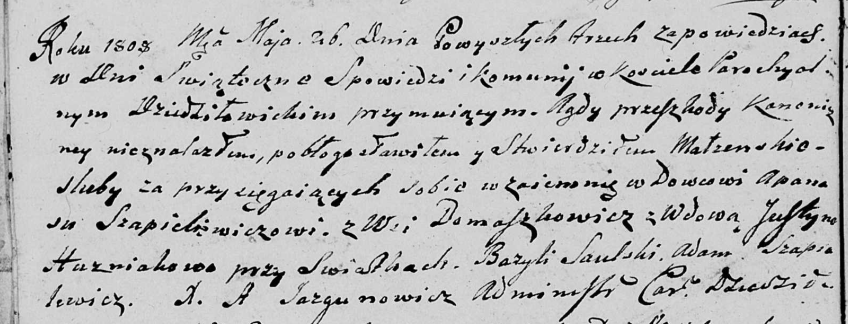 Roku 1808 Mca Maja. 26. Dnia Powyszłych trzech zapowiedziach.
w Dni Swiąteczne Spowiedzi i komunij w Kosciele Parochyal-
nym Dziedziłowickim przymuiącym. Agdy przeszkody Kanonicz
ney nieznalazłem, pobłogosławiłem y Stwierdziłem Małzenskie-
sluby za przysięgaiących sobie wzaiemnię wDowcowi Apana
su Szapielewiczowi. z Wsi Domaszkowicz z Wdową Justyno
Huzniakowo przy Swiatkach. Bazyli Saulski. Adam Szapie
lewicz. X. A Jazgunowicz Administr Par. Dziedził.